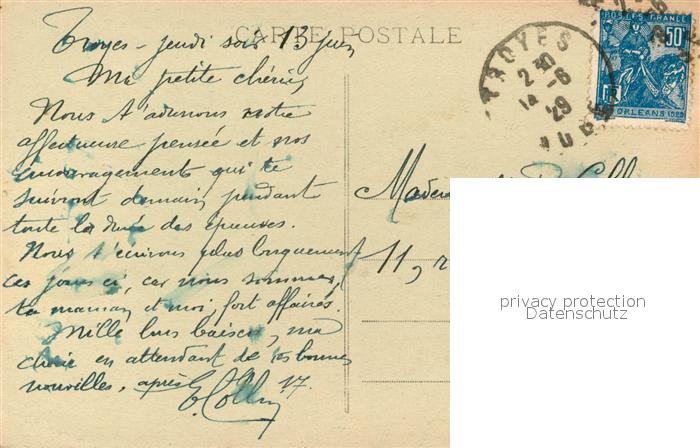 CARTE POSTALE
Troyes - jeudi soir 13 juin
Ma petite chérie,
Nous t'adressons notre
affectueuse pensée et nos
encouragements qui te
suivront demain, pendant
toute la durée des épreuves.
Nous t'écrirons plus longuement
ces jours ci, car nous sommes,
ta maman et moi, fort affairés.
Mille bons baisers, ma
chérie en attendant de tes bonnes
nouvelles, après
17.
11, r
TROYES
2 30
14 - 6
29
AUBE
POSTES FRANCE
50c
RF
ORLEANS 1929
privacy protection
Datenschutz